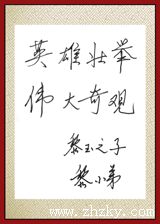 英雄壮举
伟大奇观
黎玉之子
黎小弟
www.zhzky.com